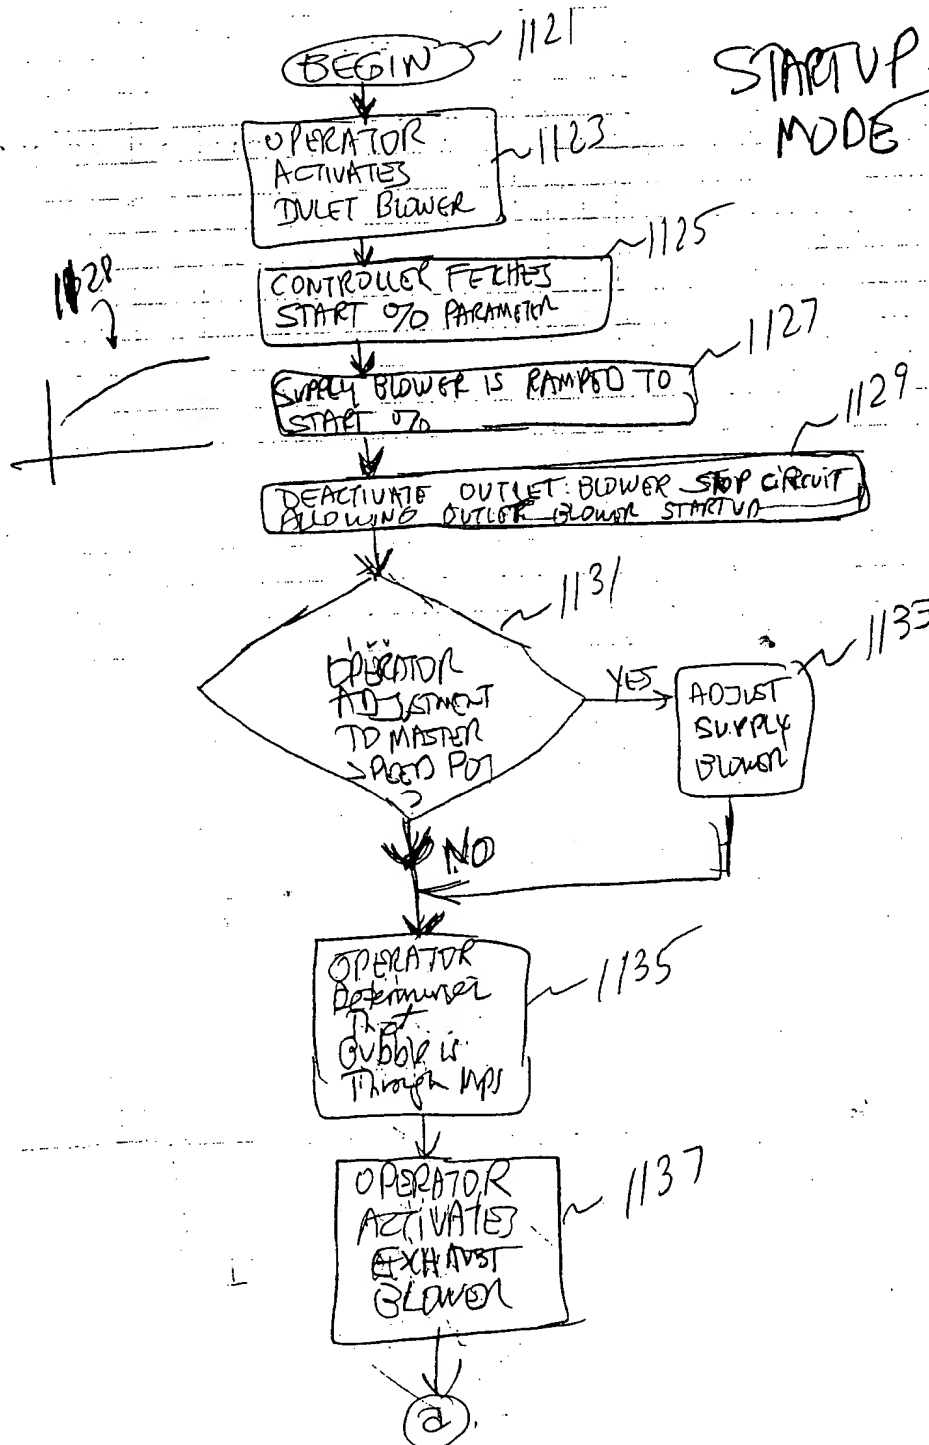 1121
BEGIN
STARTUP
MODE
OPERATOR
ACTIVATES
INLET BLOWER
1123
1125
CONTROLLER FETCHES
START % PARAMETER
1128
1127
SUPPLY BLOWER IS RAMPED TO
START %
1129
DEACTIVATE OUTLET BLOWER STOP CIRCUIT
ALLOWING OUTLET BLOWER STARTUP
1131
OPERATOR
ADJUSTMENT
TO MASTER
SPEED POT
?
YES
1133
ADJUST
SUPPLY
BLOWER
NO
OPERATOR
Determines
That
Bubble is
Through
1135
OPERATOR
ACTIVATES
EXHAUST
BLOWER
1137
a